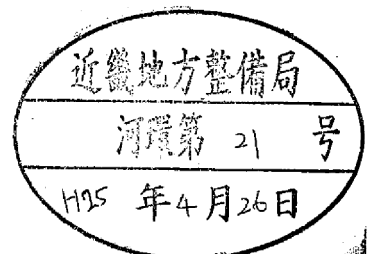 近畿地方整備局
河環第 21 号
H25 年 4 月 26 日